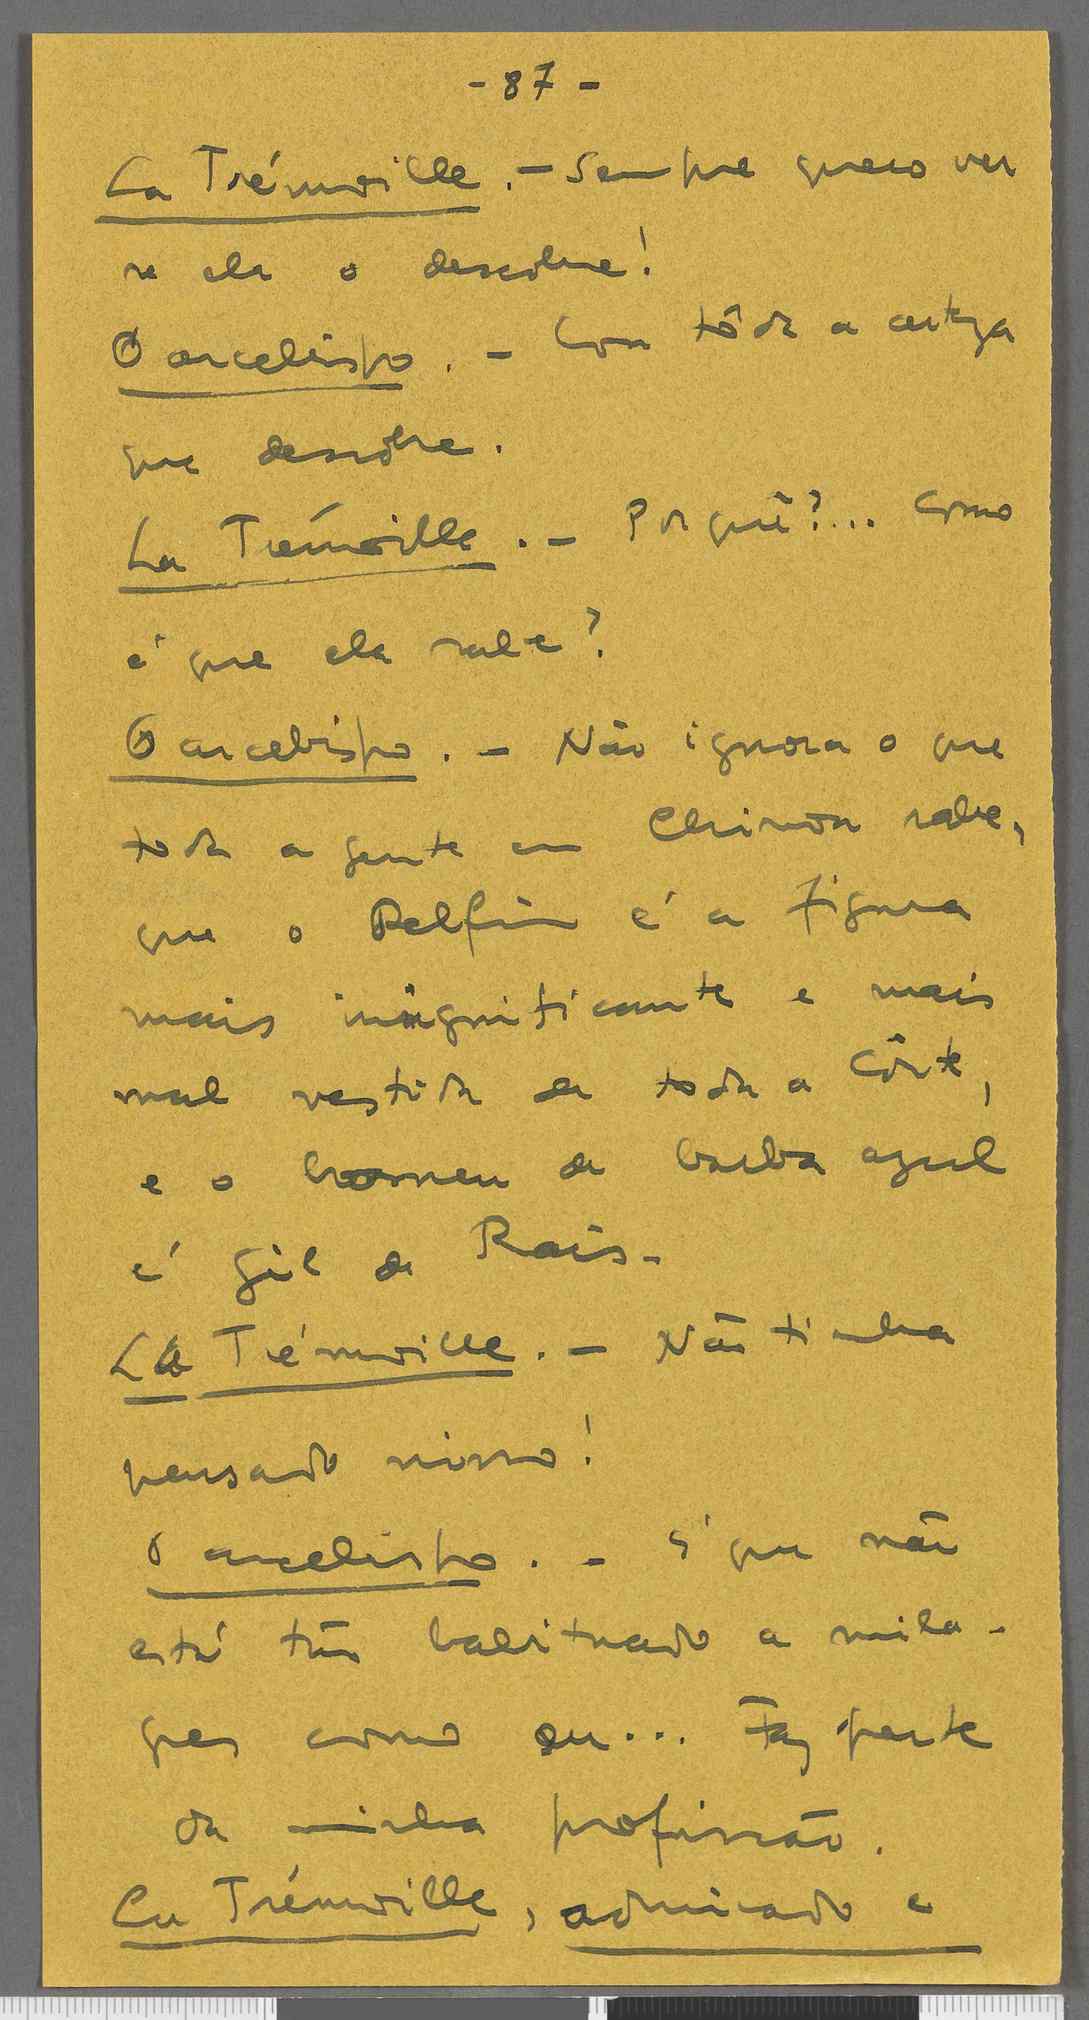 - 87 -
La Trémoille. - Sempre quero ver
se ela o descobre!
O arcebispo. - Com tôda a certeza
que descobre.
La Trémoille. - Porquê?... Como
é que ela sabe?
O arcebispo. - Não ignora o que
toda a gente em Chinon sabe,
que o Delfim é a figura
mais insignificante e mais
mal vestida de toda a Côrte,
e o homem de barba azul
é Gil de Rais.
La Trémoille. - Não tinha
pensado nisso!
O arcebispo. - É que não
está tão habituado a mila-
gres como eu... Faz parte
da minha profissão.
La Trémoille, admirado e